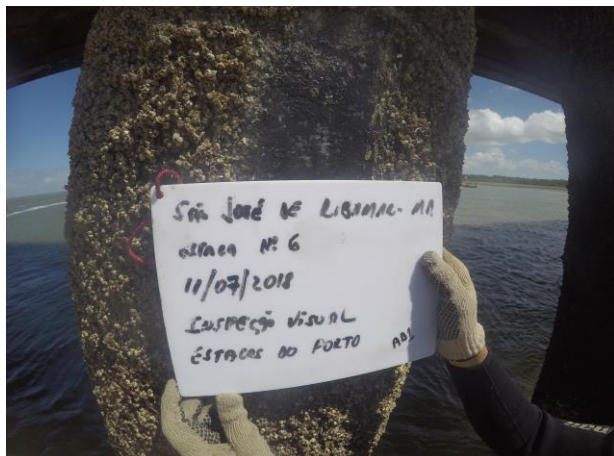 São José de RIBAMAR-MA
ESTACA Nº 6
11/07/2018
INSPEÇÃO VISUAL
ESTACAS DO PORTO